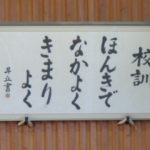 校訓
ほんきで
なかよく
きまり
よく